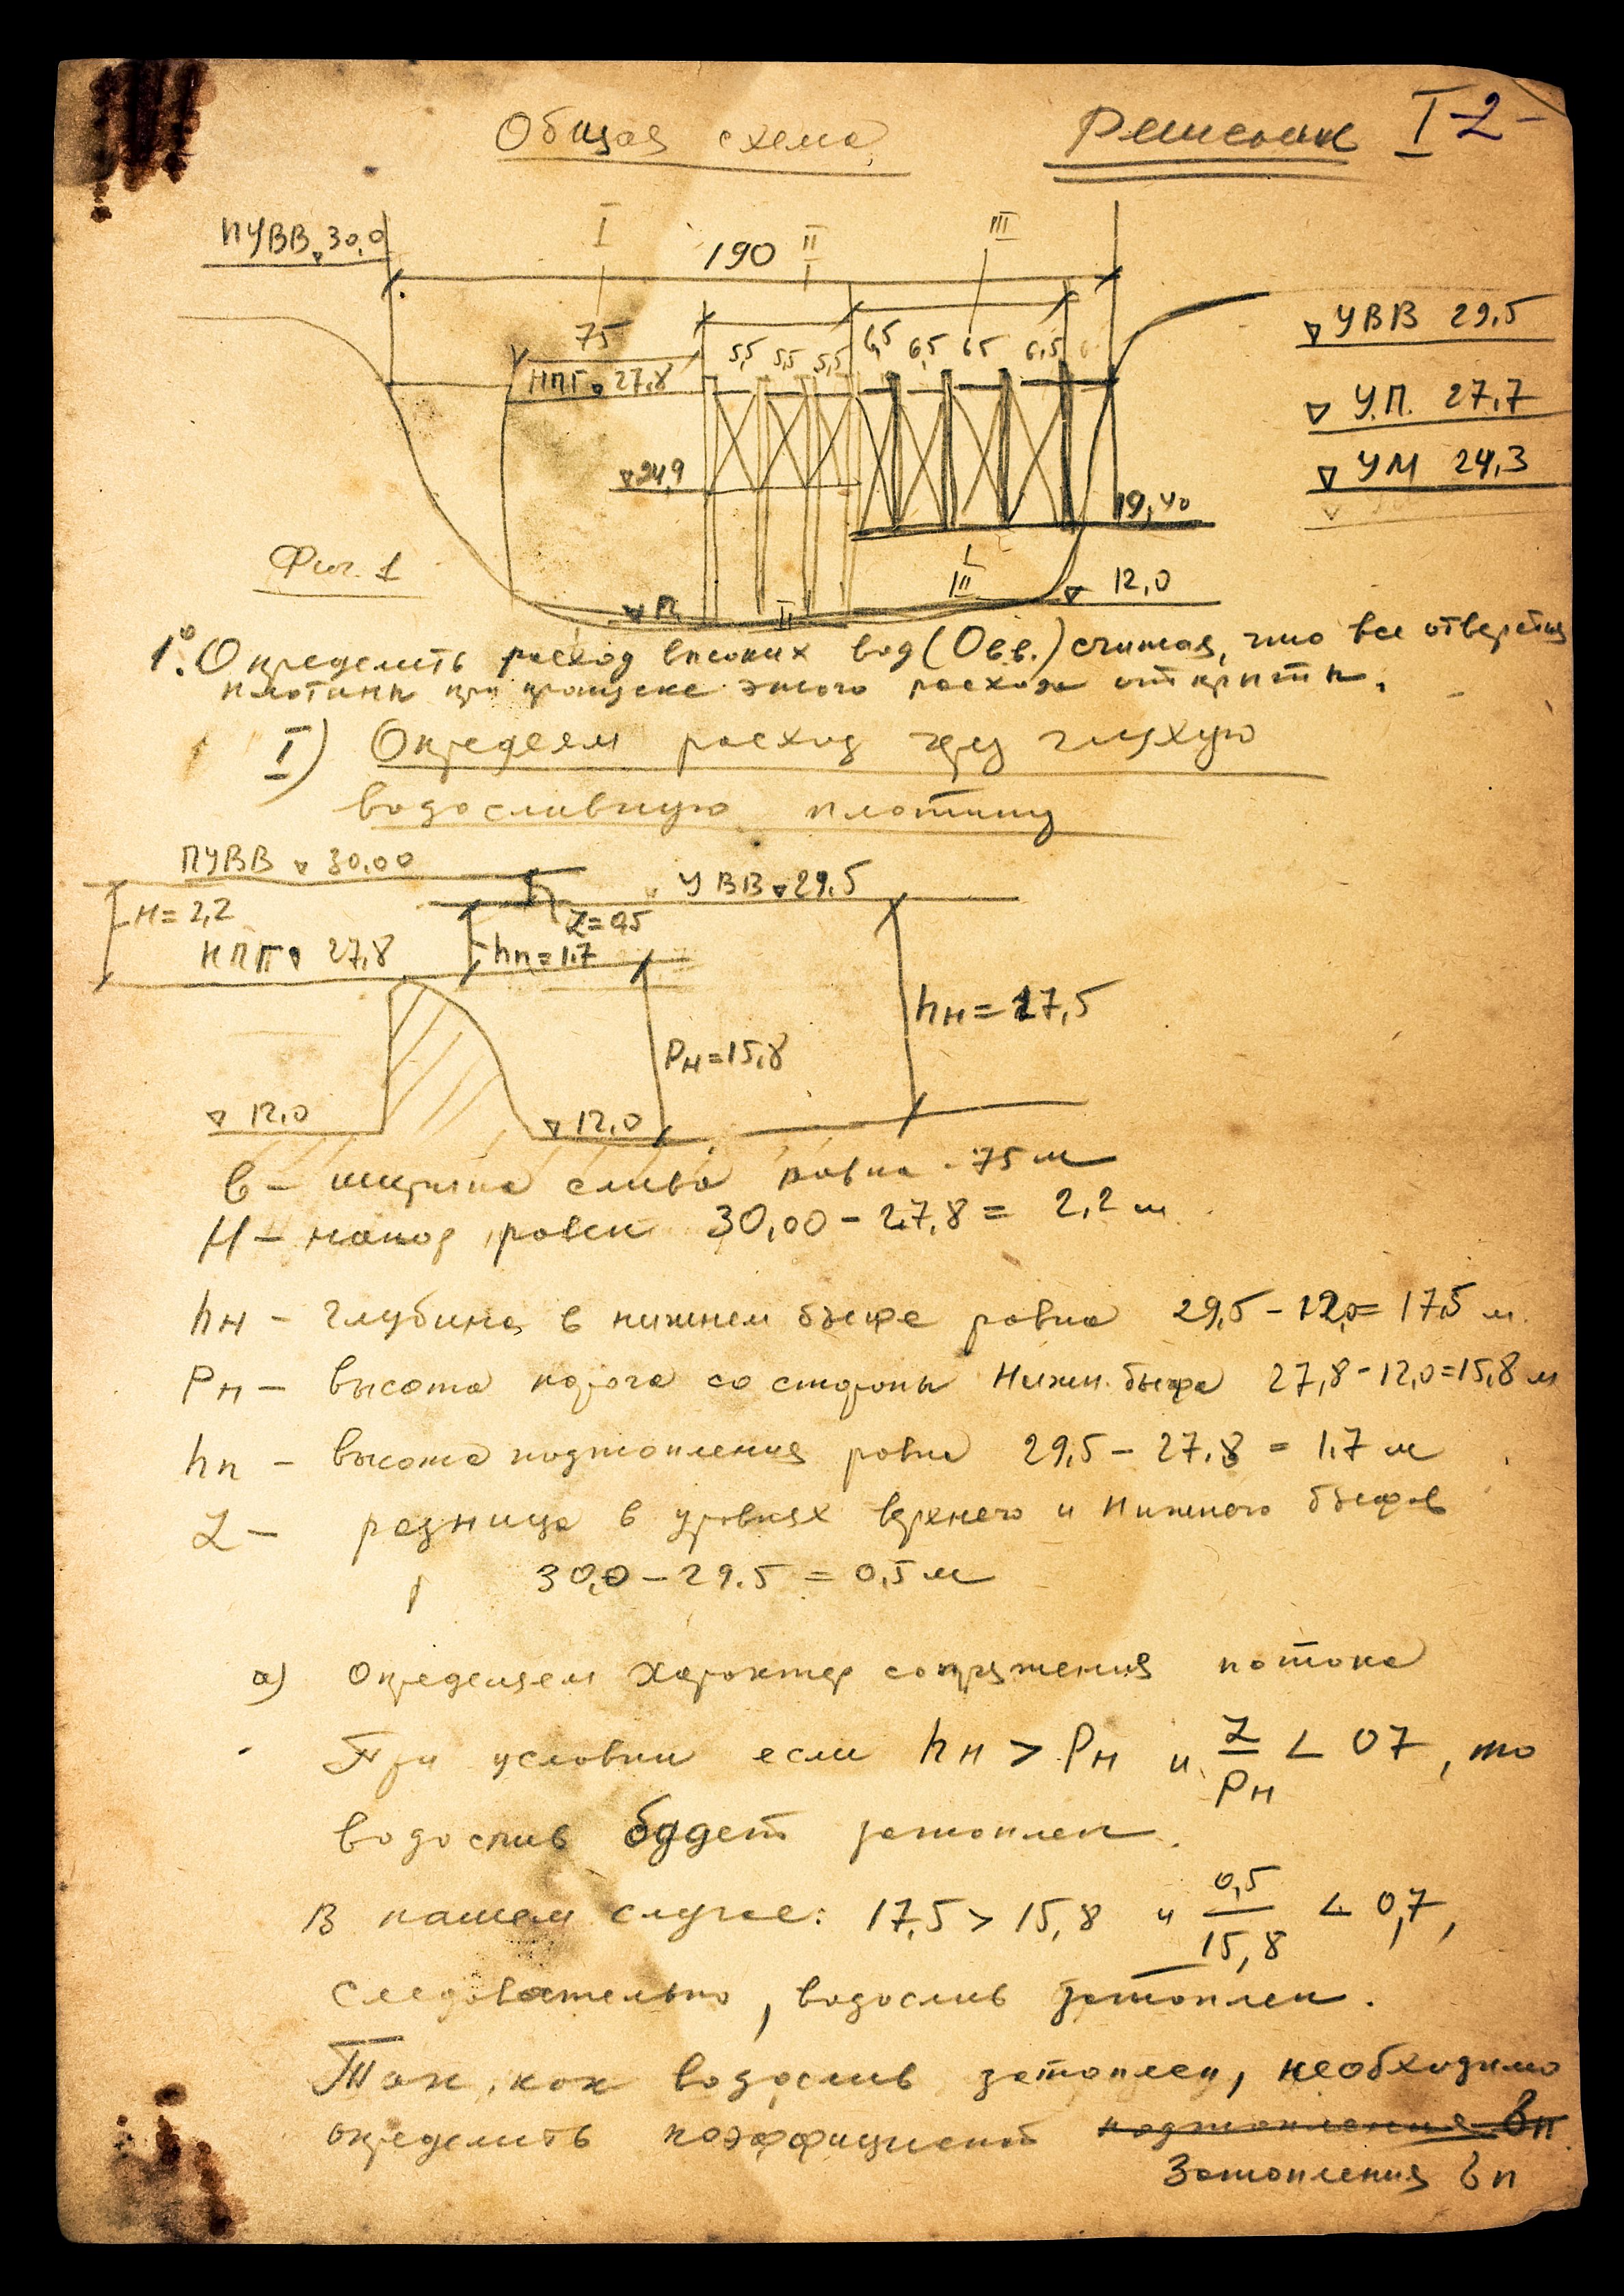 Общая схема
Решение I-2-
I
II
III
ПУВВ 30,0
190
75
5,5 5,5 5,5
6,5 6,5 6,5 6,5
НПГ 27,8
УВВ 29,5
У.П. 27,7
УМ 24,3
24,9
19,40
Фиг. 1
II
III
12,0
1.° Определить расход высоких вод (Qв.в.) считая, что все отверстия
плотины при пропуске этого расхода открыты.
I) Определяем расход через глухую
водосливную плотину
ПУВВ 30,00
УВВ 29,5
H=2,2
Z=0,5
НПГ 27,8
hп=1,7
hн=17,5
Pн=15,8
12,0
12,0
b – ширина слива равна 75 м
H – напор равен 30,00 – 27,8 = 2,2 м
hн – глубина в нижнем бьефе равна 29,5 – 12,0 = 17,5 м
Pн – высота порога со стороны Нижн. бьефа 27,8 - 12,0 = 15,8 м
hп – высота подтопления равна 29,5 – 27,8 = 1,7 м
Z – разница в уровнях верхнего и нижнего бьефов
30,0 – 29.5 = 0,5 м
а) Определяем характер сопряжения потока
При условии если hн > Pн и Z/Pн < 07, то
водослив будет затоплен.
В нашем случае: 17,5 > 15,8 и 0,5/15,8 < 0,7,
следовательно, водослив затоплен.
Так, как водослив затоплен, необходимо
определить коэффициент подтопления бп
Затопления бп